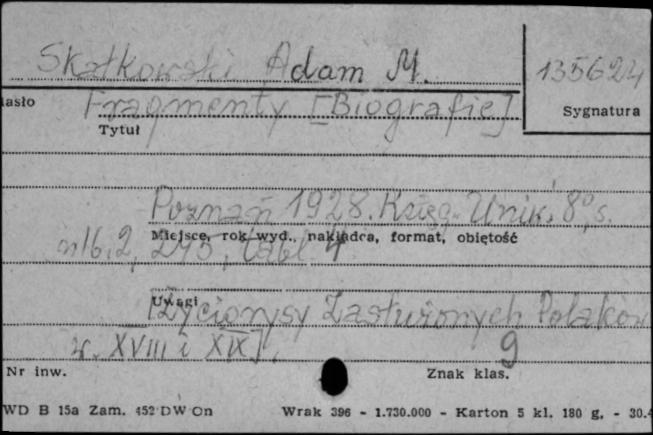 Skałkowski Adam M.
135624
asło
Fragmenty [Biografie]
Sygnatura
Tytuł
Poznań 1928. Księg. Uniw. 8°, s.
Miejsce, rok wyd., nakładca, format, objętość
nlb. 2, 275, tabl. 4
Uwagi
[Życiorysy Zasłużonych Polaków
w. XVIII i XIX].
9
Nr inw.
Znak klas.
WD B 15a Zam. 452 DW On
Wrak 396 - 1.730.000 - Karton 5 kl. 180 g. - 30.4